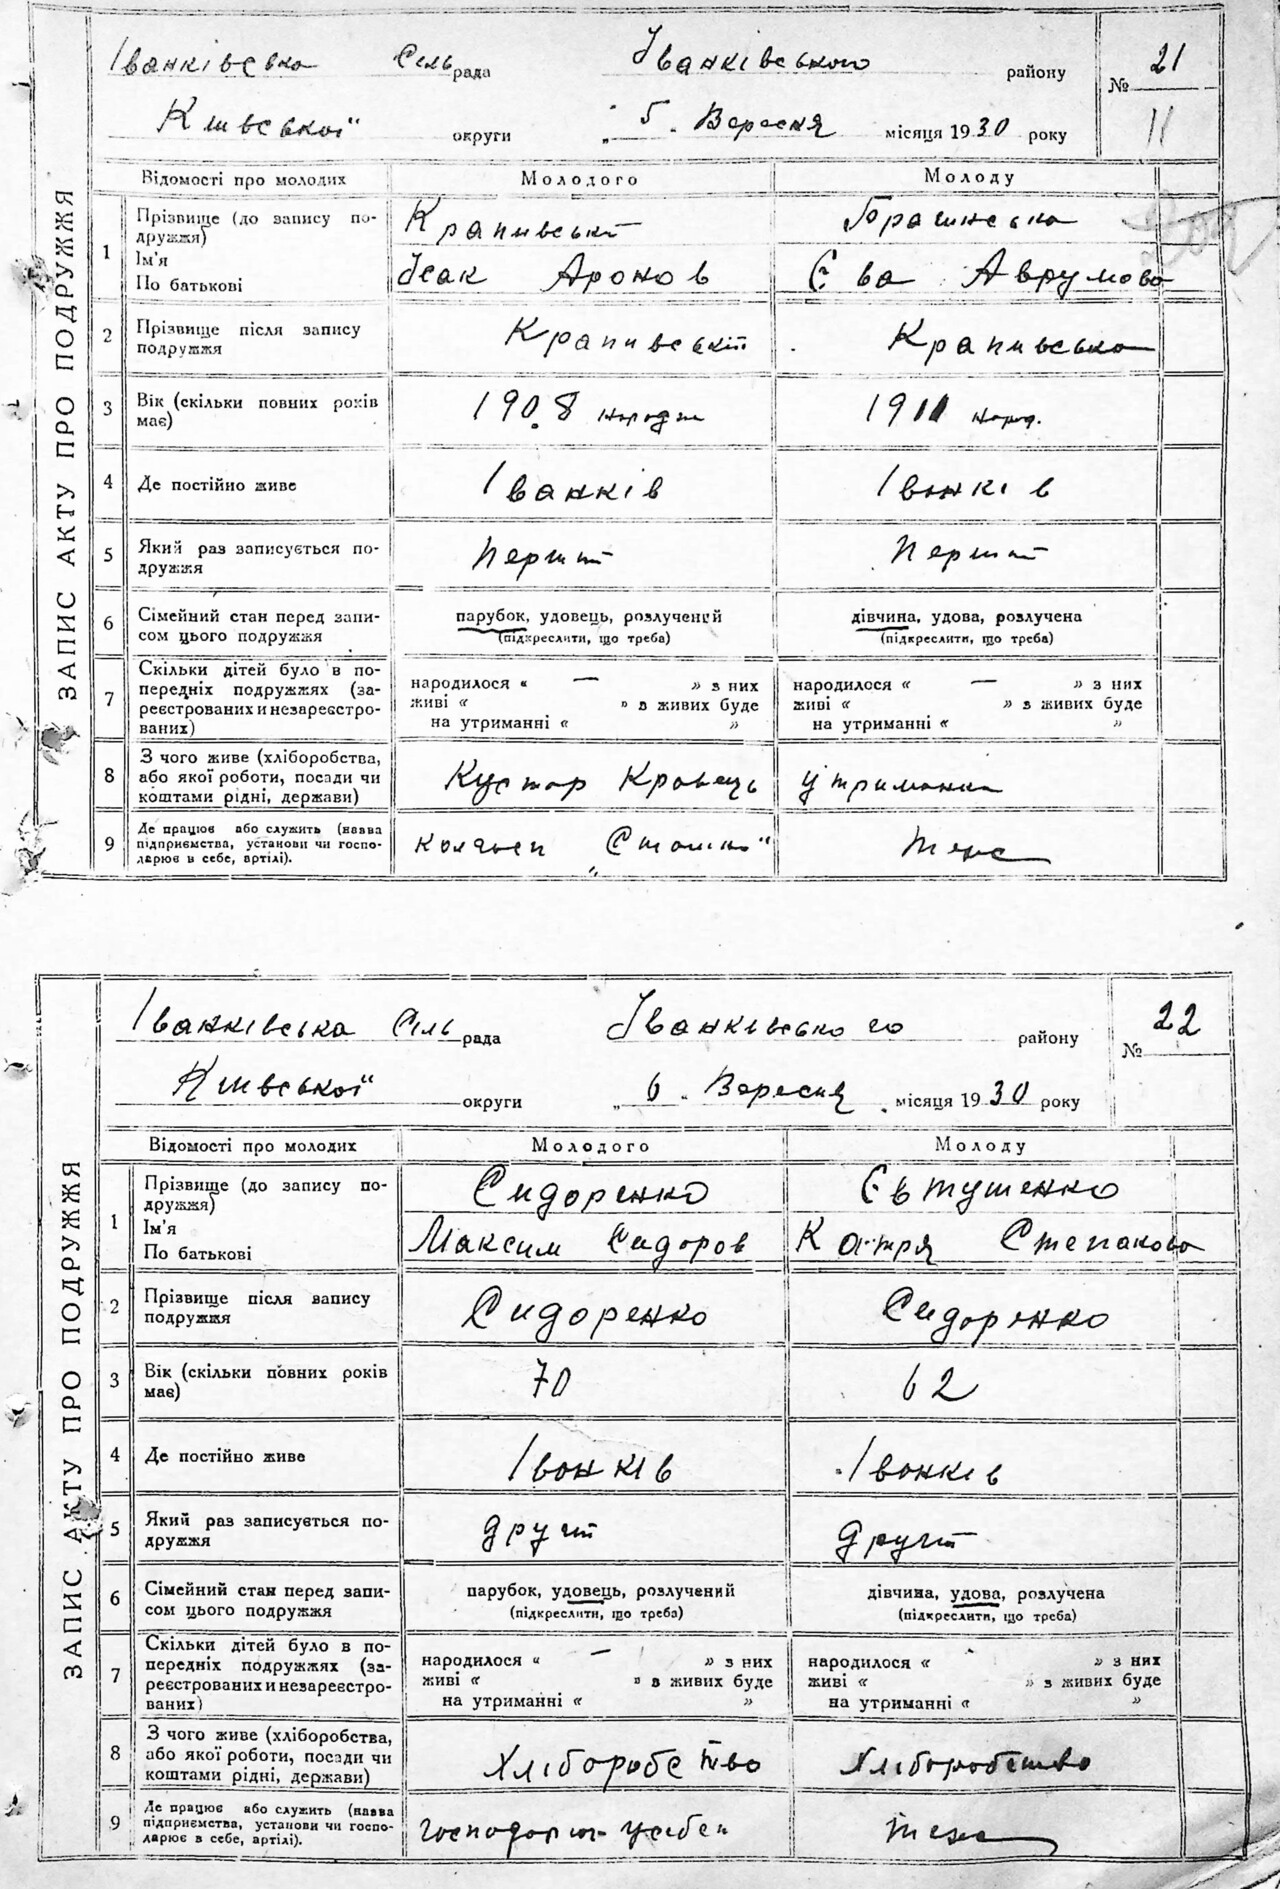 ЗАПИС АКТУ ПРО ПОДРУЖЖЯ
Іванківська сільрада Іванківського району № 21
Київської округи „5" Вересня місяця 1930 року 11
Відомості про молодих Молодого Молоду
1 Прізвище (до запису по-
дружжя) Крапивський
Ім'я Ісак Аронов Єва Аврумова
По батькові
2 Прізвище після запису
подружжя Крапивський Крапивська
3 Вік (скільки повних років
має) 1908 1911 народ.
4 Де постійно живе Іванків Іванків
5 Який раз записується по-
дружжя Перший Перший
6 Сімейний стан перед запи-
сом цього подружжя
парубок, удовець, розлучений дівчина, удова, розлучена
(підкреслити, що треба) (підкреслити, що треба)
7 Скільки дітей було в по-
передніх подружжях (за-
реєстрованих и незареєстро-
ваних)
народилося « — » з них народилося « — » з них
живі « » в живих буде живі « » з живих буде
на утриманні « » на утриманні « »
8 З чого живе (хліборобства,
або якої роботи, посади чи
коштами рідні, держави)
Кустар Кравець утриманка
9 Де працює або служить (назва
підприємства, установи чи госпо-
дарює в себе, артілі).
теж
ЗАПИС АКТУ ПРО ПОДРУЖЖЯ
Іванківська сільрада Іванківського району № 22
Київської округи „6" Вересня місяця 1930 року
Відомості про молодих Молодого Молоду
1 Прізвище (до запису по-
дружжя) Сидоренко Євтушенко
Ім'я Максим Сидоров Катря Степанова
По батькові
2 Прізвище після запису
подружжя Сидоренко Сидоренко
3 Вік (скільки повних років
має) 70 62
4 Де постійно живе Іванків Іванків
5 Який раз записується по-
дружжя другий другий
6 Сімейний стан перед запи-
сом цього подружжя
парубок, удовець, розлучений дівчина, удова, розлучена
(підкреслити, що треба) (підкреслити, що треба)
7 Скільки дітей було в по-
передніх подружжях (за-
реєстрованих и незареєстро-
ваних)
народилося « — » з них народилося « » з них
живі « » в живих буде живі « » з живих буде
на утриманні « » на утриманні « »
8 З чого живе (хліборобства,
або якої роботи, посади чи
коштами рідні, держави)
Хліборобство Хліборобство
9 Де працює або служить (назва
підприємства, установи чи госпо-
дарює в себе, артілі).
теж